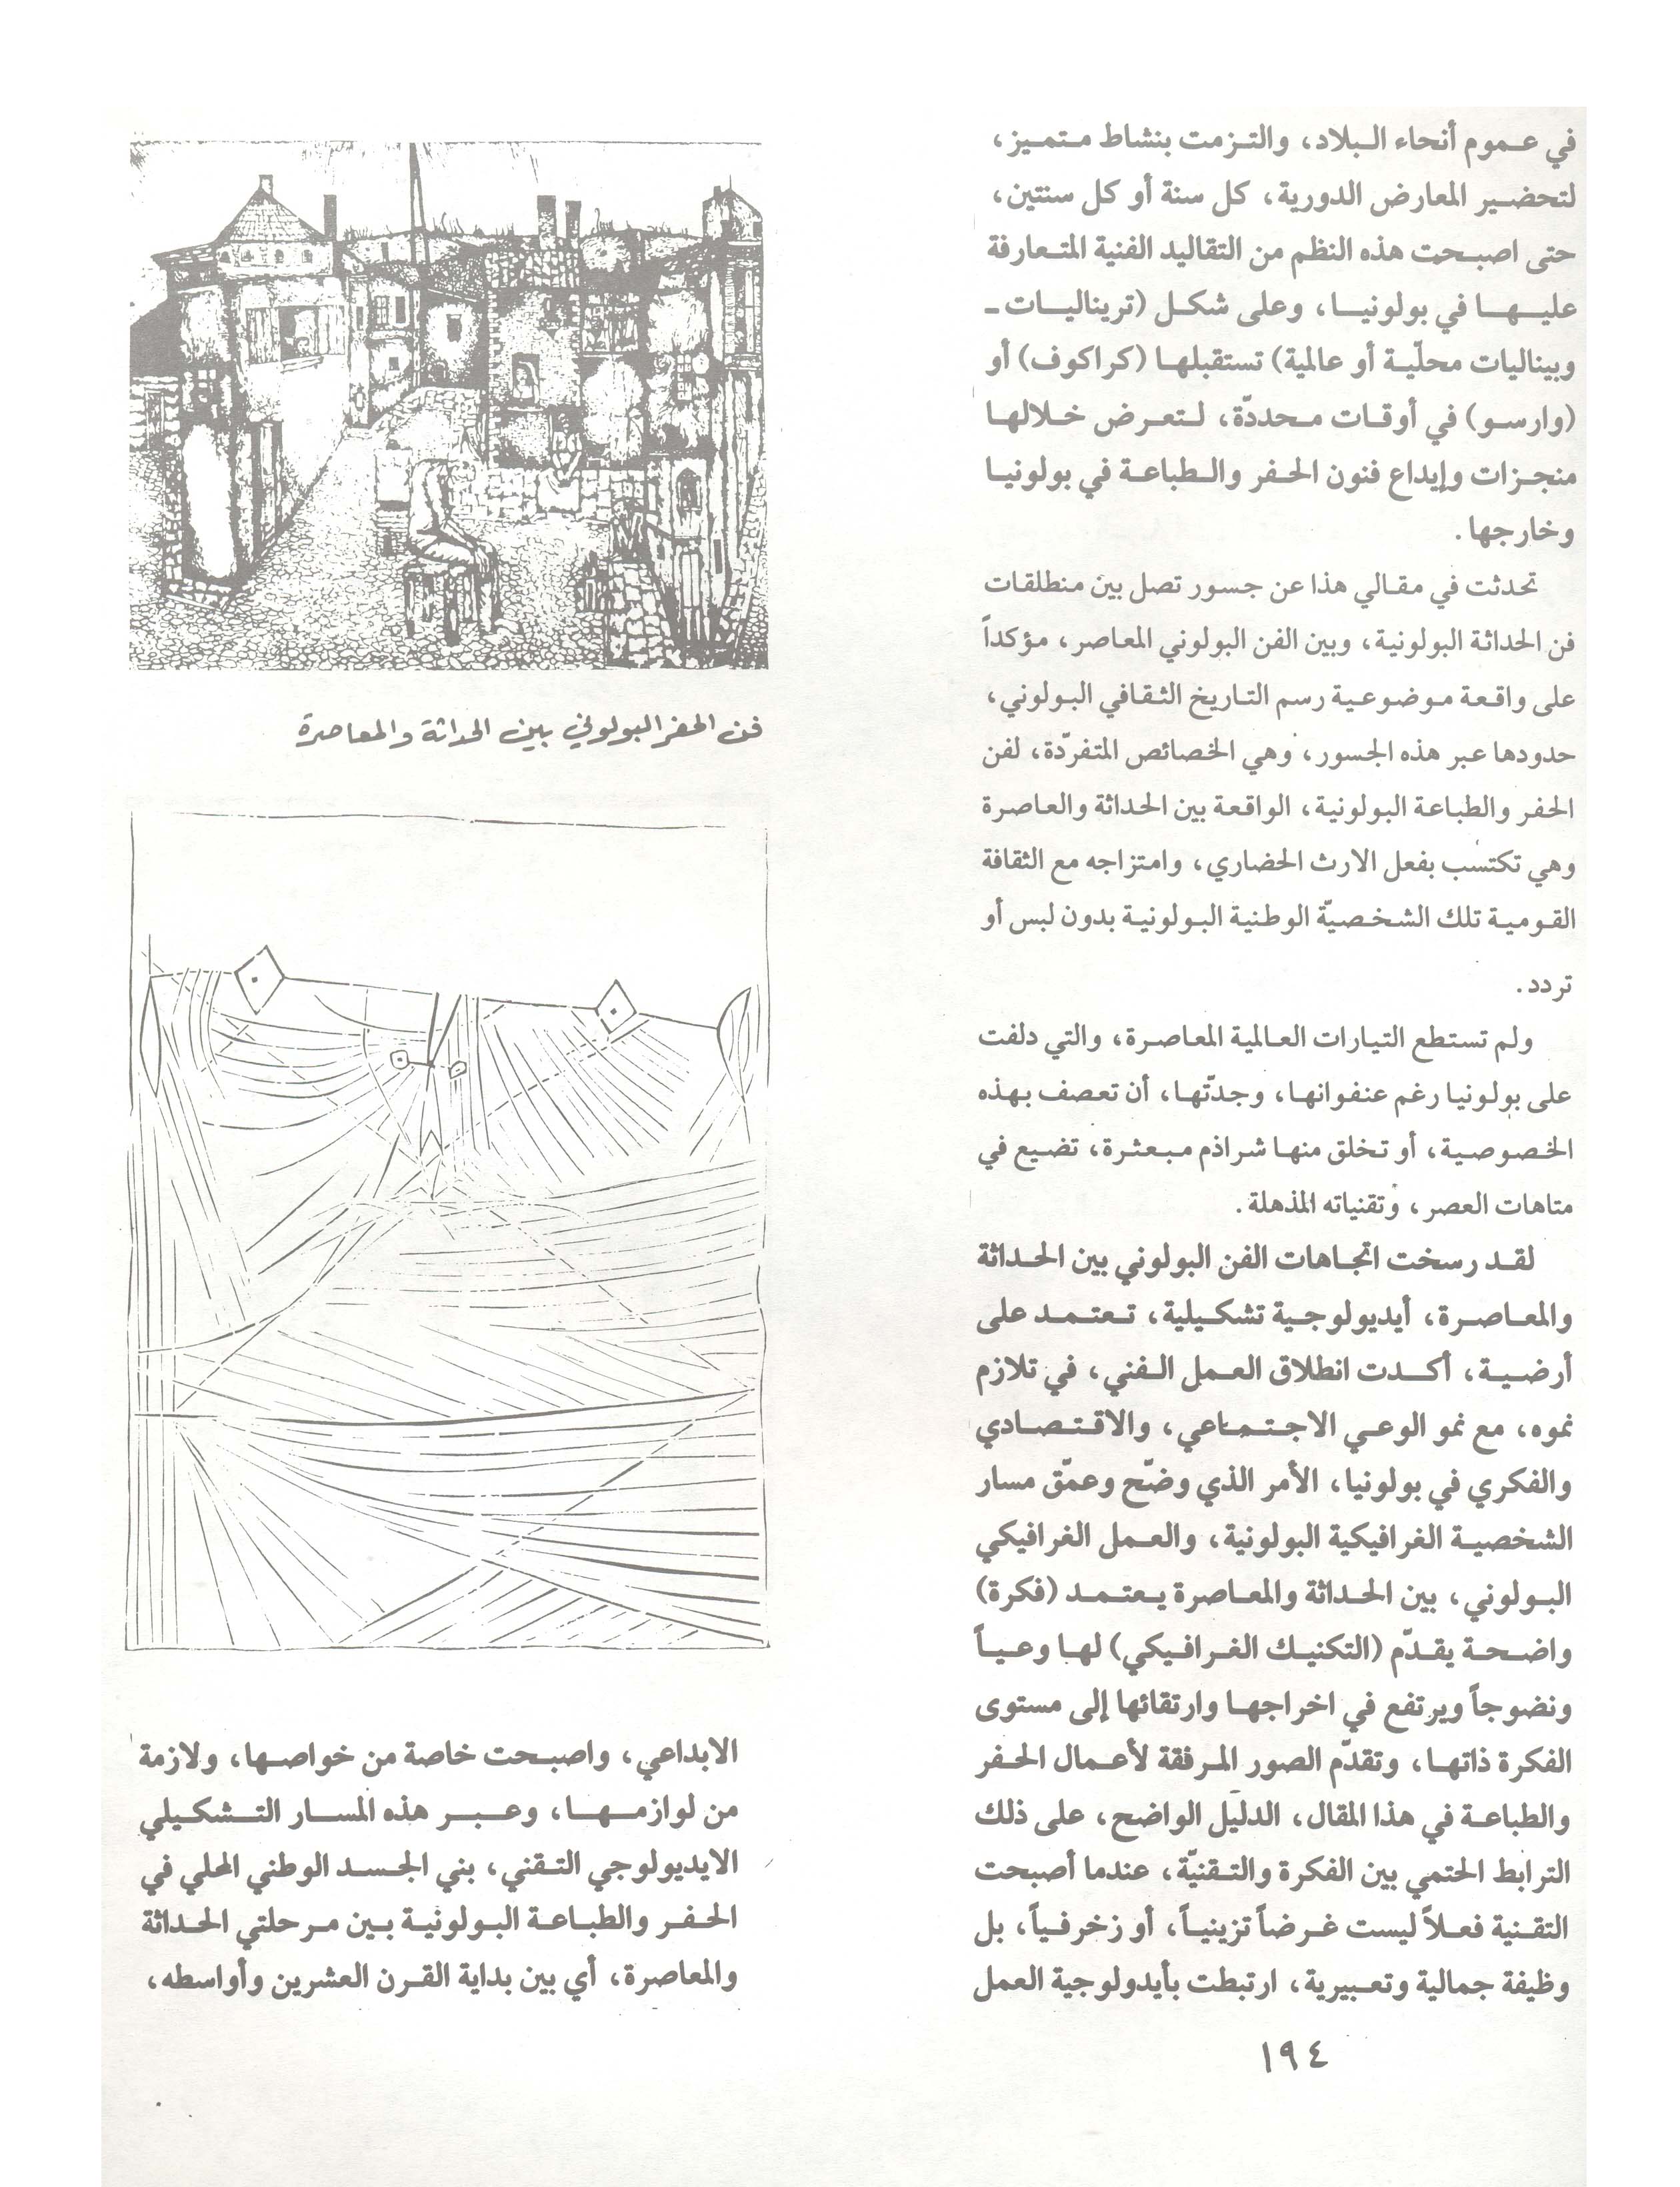 في عموم أنحاء البلاد، والتزمت بنشاط متميز،
لتحضير المعارض الدورية، كل سنة أو كل سنتين،
حتى اصبحت هذه النظم من التقاليد الفنية المتعارفة
عليها في بولونيا، وعلى شكل (تريناليات ـ
وبيناليات محلّية أو عالمية) تستقبلها (كراكوف) أو
(وارسو) في أوقات محددّة، لتعرض خلالها
منجزات وإبداع فنون الحفر والطباعة في بولونيا
وخارجها.
تحدثت في مقالي هذا عن جسور تصل بين منطلقات
فن الحداثة البولونية، وبين الفن البولوني المعاصر، مؤكداً
على واقعة موضوعية رسم التاريخ الثقافي البولوني،
حدودها عبر هذه الجسور، وهي الخصائص المتفرّدة، لفن
الحفر والطباعة البولونية، الواقعة بين الحداثة والعاصرة
وهي تكتسب بفعل الارث الحضاري، وامتزاجه مع الثقافة
القومية تلك الشخصيّة الوطنية البولونية بدون لبس أو
تردد.
ولم تستطع التيارات العالمية المعاصرة، والتي دلفت
على بولونيا رغم عنفوانها، وجدّتها، أن تعصف بهذه
الخصوصية، أو تخلق منها شراذم مبعثرة، تضيع في
متاهات العصر، وتقنياته المذهلة.
لقد رسخت اتجاهات الفن البولوني بين الحداثة
والمعاصرة، أيديولوجية تشكيلية، تعتمد على
أرضية، أكدت انطلاق العمل الفني، في تلازم
نموه، مع نمو الوعي الاجتماعي، والاقتصادي
والفكري في بولونيا، الأمر الذي وضّح وعمّق مسار
الشخصية الغرافيكية البولونية، والعمل الغرافيكي
البولوني، بين الحداثة والمعاصرة يعتمد (فكرة)
واضحة يقدّم (التكنيك الغرافيكي) لها وعياً
ونضوجاً ويرتفع في اخراجها وارتقائها إلى مستوى
الفكرة ذاتها، وتقدّم الصور المرفقة لأعمال الحفر
والطباعة في هذا المقال، الدليل الواضح، على ذلك
الترابط الحتمي بين الفكرة والتقنيّة، عندما أصبحت
التقنية فعلاً ليست غرضاً تزينياً، أو زخرفياً، بل
وظيفة جمالية وتعبيرية، ارتبطت بأيدولوجية العمل
فن الحفر البولوني بين الحداثة والمعاصرة
الابداعي، واصبحت خاصة من خواصها، ولازمة
من لوازمها، وعبر هذه المسار التشكيلي
الايديولوجي التقني، بني الجسد الوطني المحلي في
الحفر والطباعة البولونية بين مرحلتي الحداثة
والمعاصرة، أي بين بداية القرن العشرين وأواسطه،
١٩٤